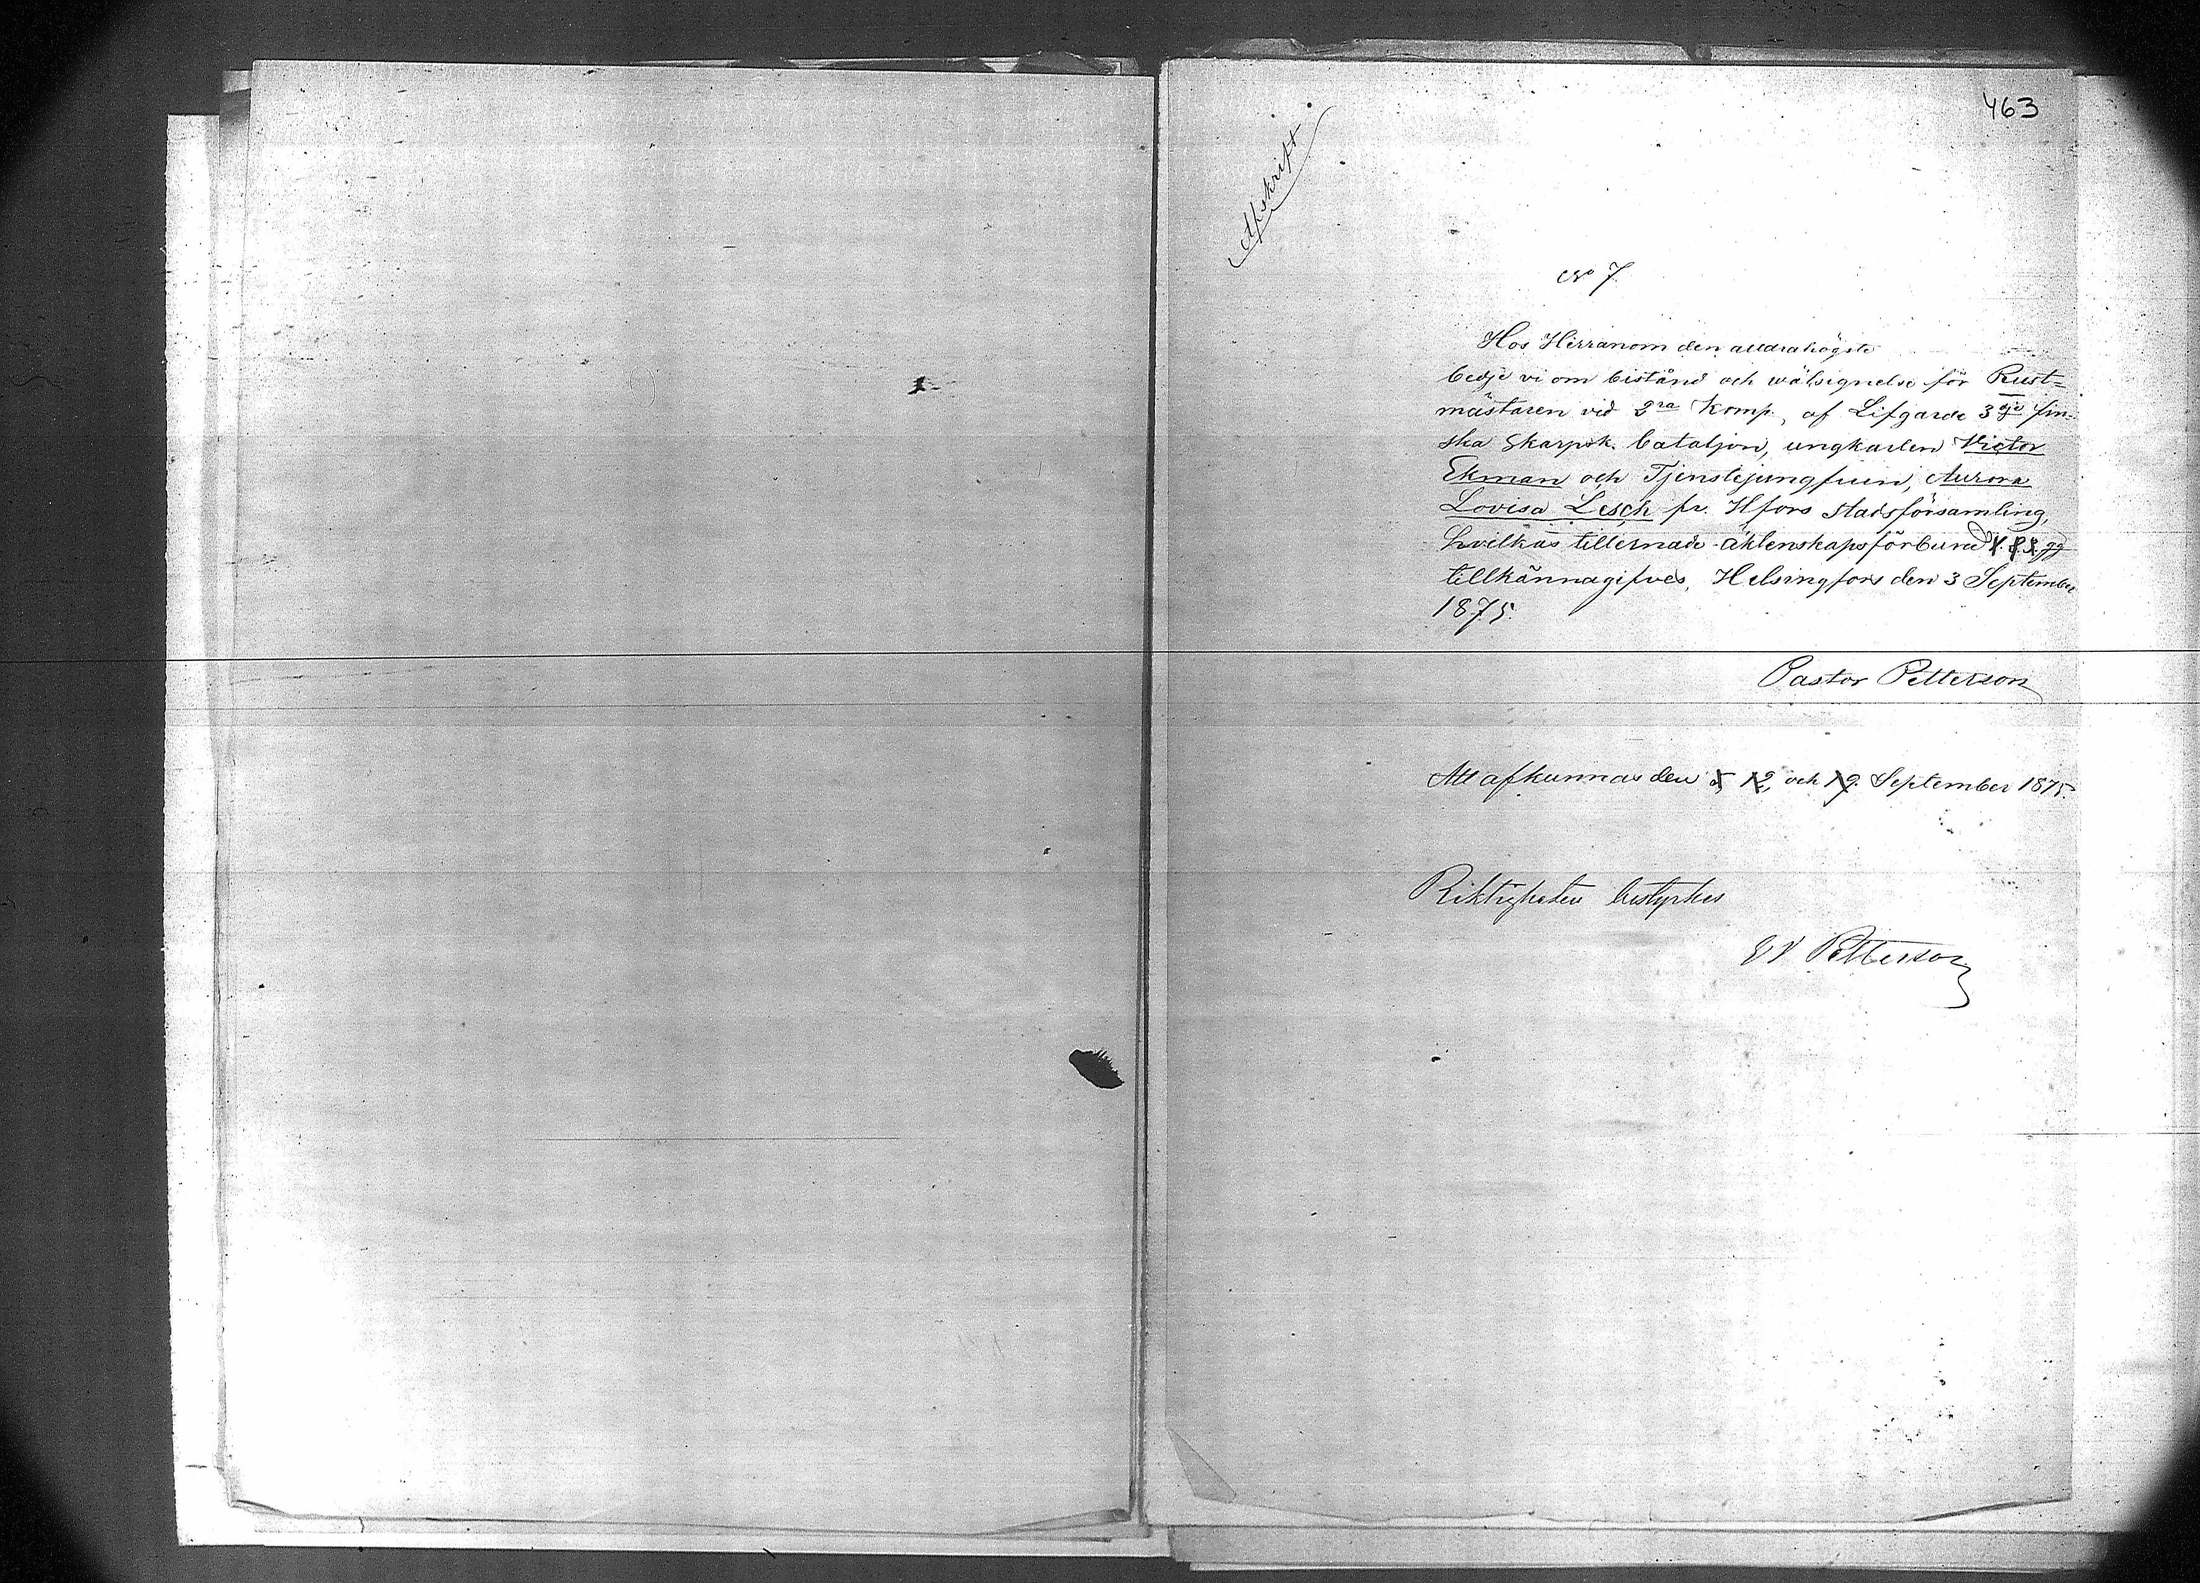 463
Afskrift
No 7
Hos Herranom den alldrahögste
bedje vi om bistånd och wälsignelse för Rust-
mästaren vid 2ra Komp. af Lifgarde 3dje fin-
ska Skarpsk. bataljon, ungkarlen Victor
Ekman och Tjenstejungfrun, Aurora
Lovisa Lesch fr. Hfors stadsförsamling,
hvilkas tillernade äktenskapsförbund
tillkännagifves. Helsingfors den 3 September
1875.
Pastor Petterson
Att afkunnas den 5, 12, och 19. September 1875.
Riktigheten bestyrkes
Petterson